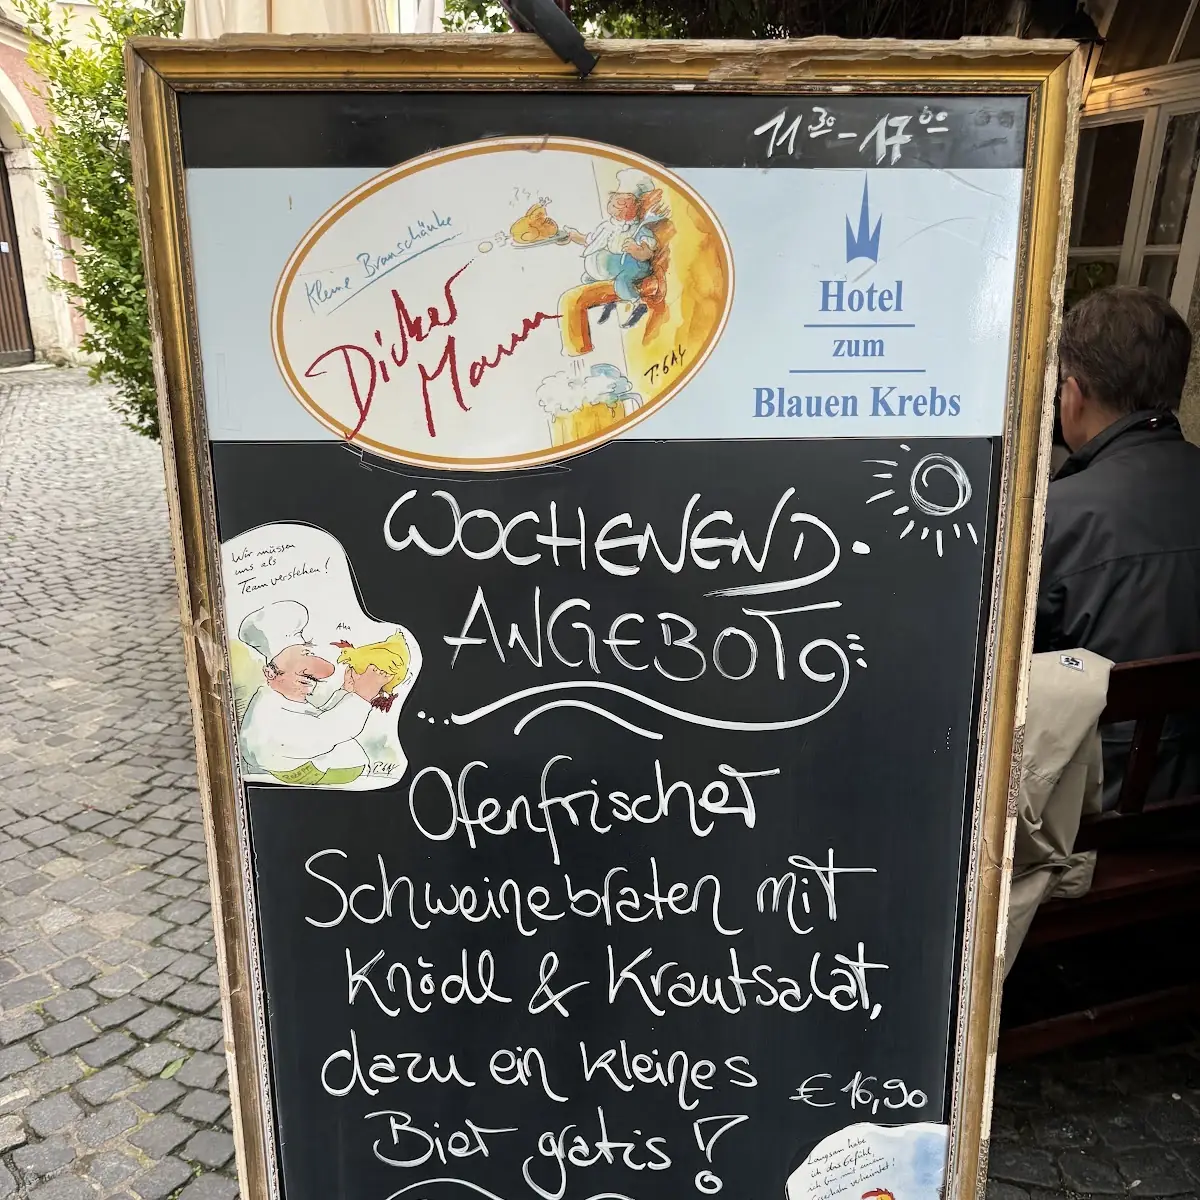 11³⁰-17⁰⁰
Kleine Brauschänke
Dicker
Mann
T. GAY
Hotel
zum
Blauen Krebs
WOCHENEND-
ANGEBOT
Wir müssen
uns als
Team verstehen!
Aha
Ofenfrischer
Schweinebraten mit
Knödl & Krautsalat,
dazu ein kleines
€ 16,90
Bier gratis!
Langsam habe
ich das Gefühl,
ich bin mit einem